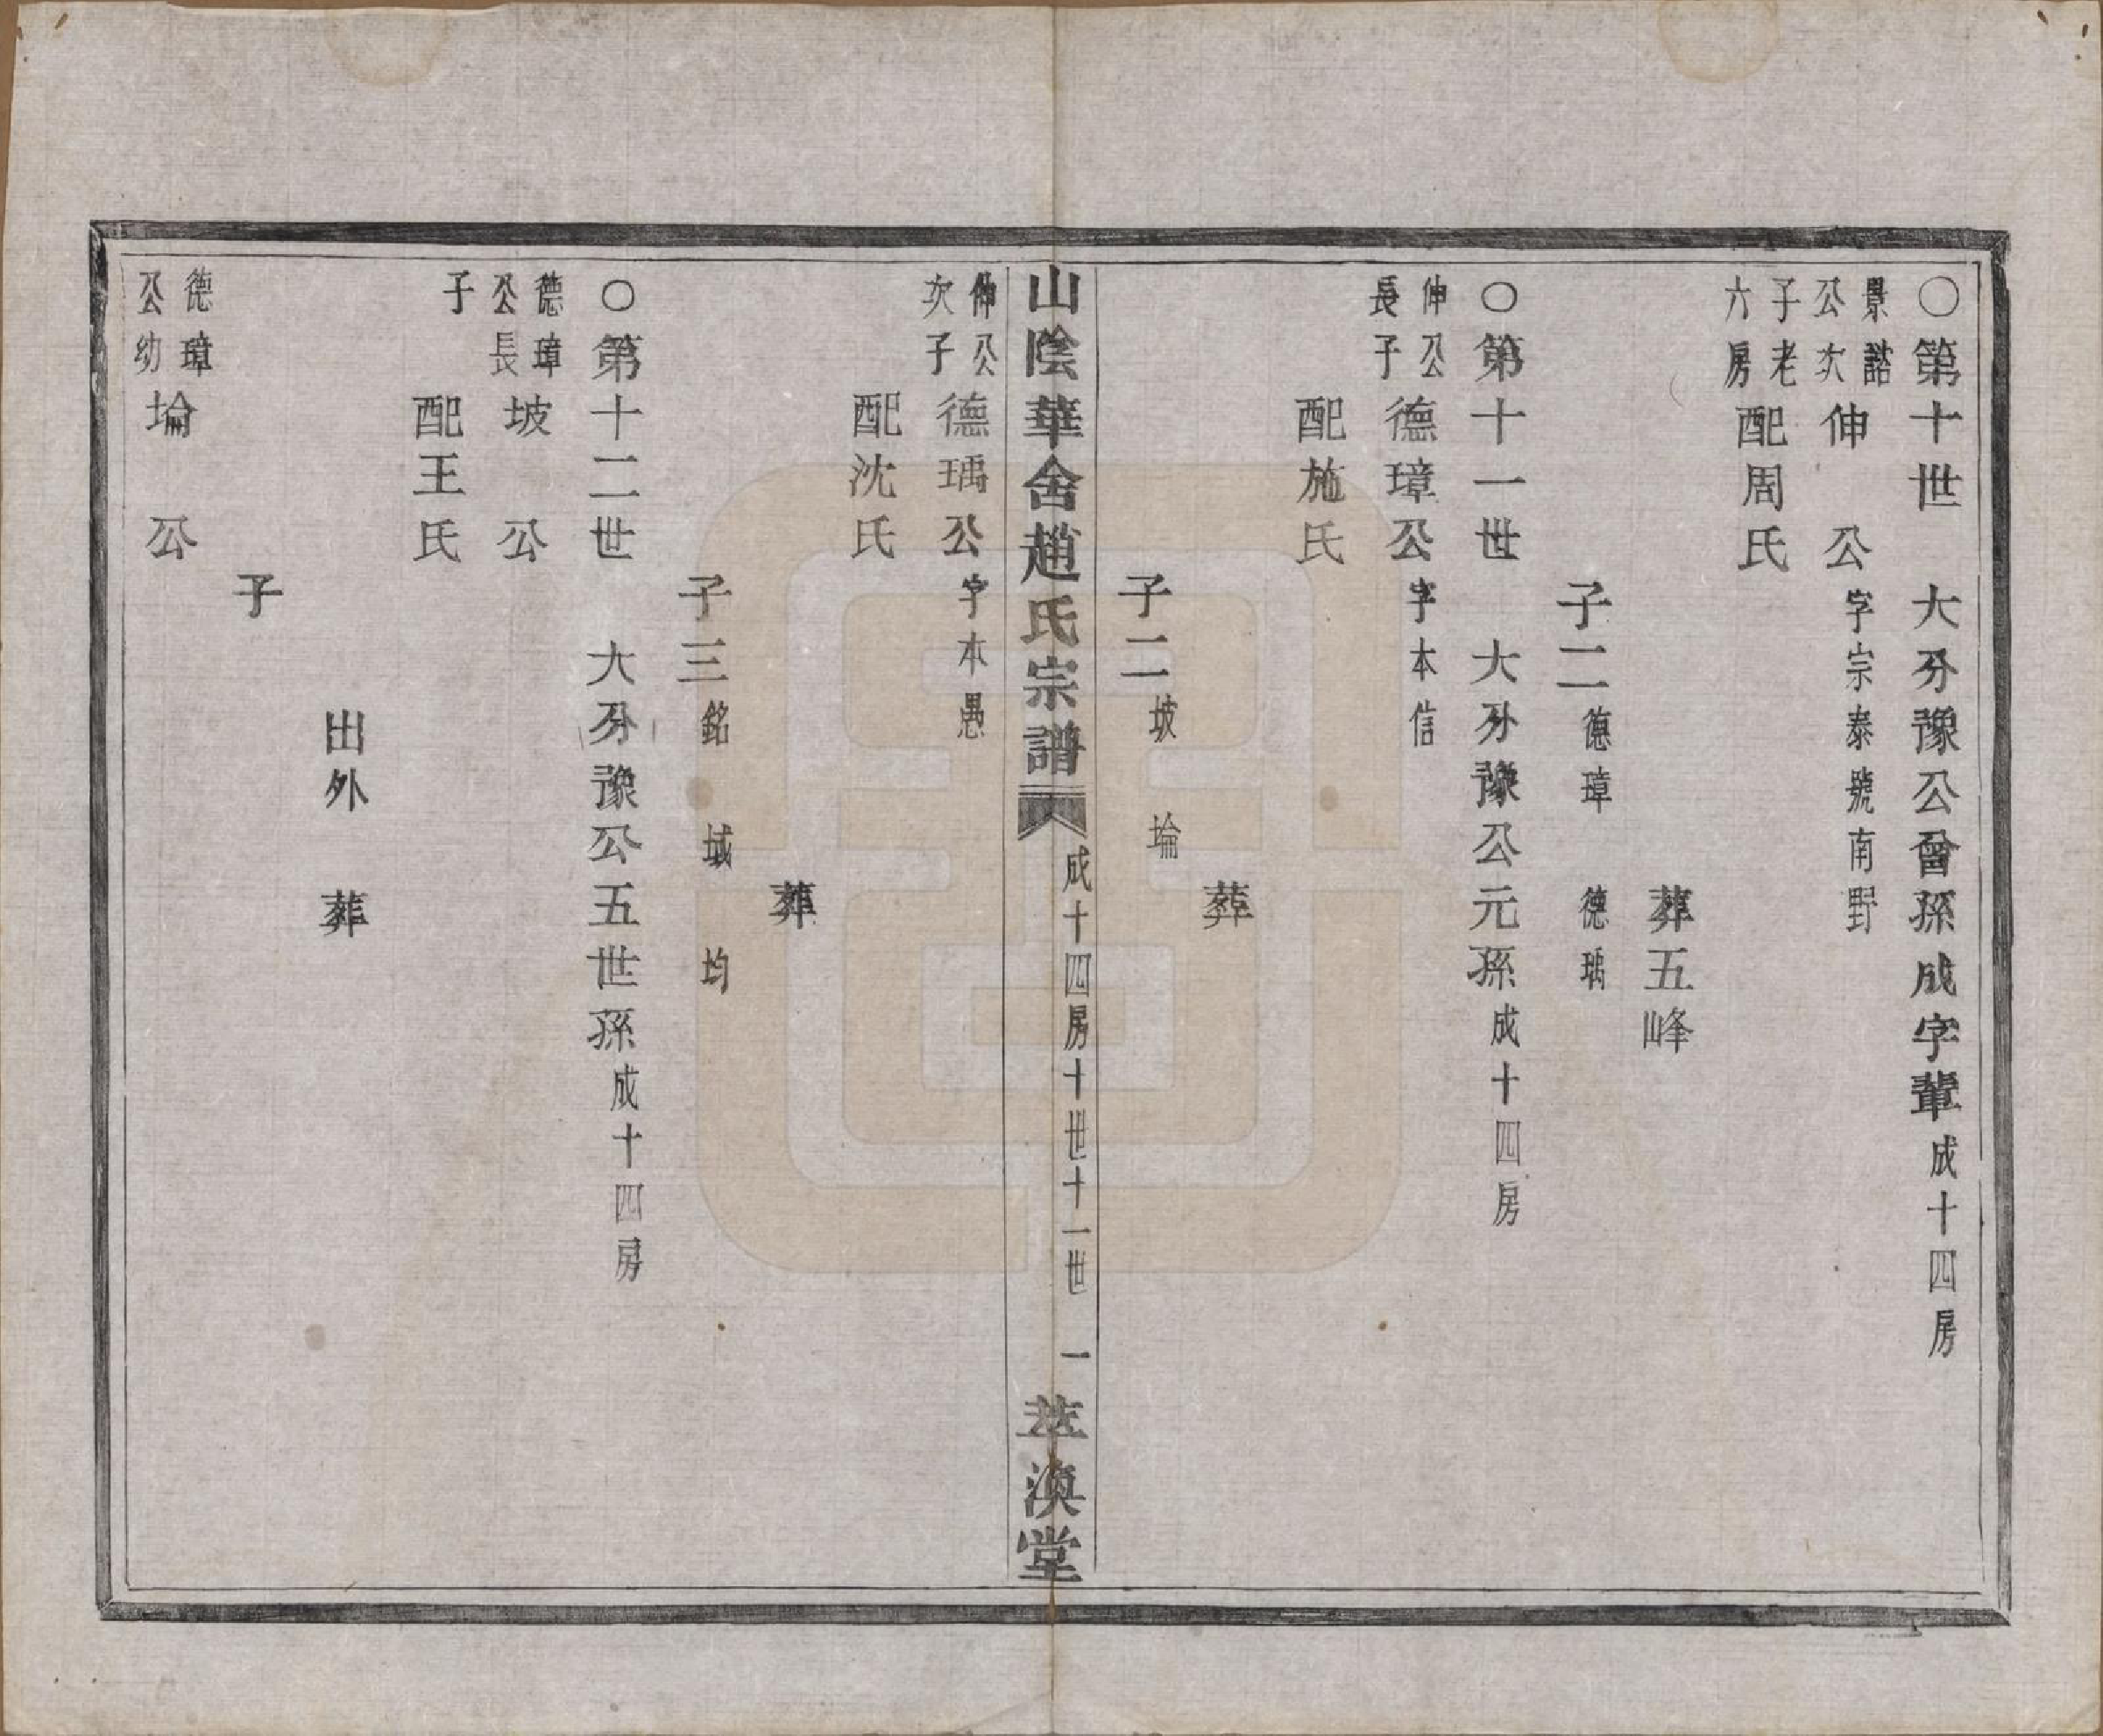 ○第十世　大分豫公曾孫成字輩成十四房
景誥公次子老六房
伸　公字宗泰號南野
配周氏
葬五峰
子二德璋　德瑀
○第十一世　大分豫公元孫成十四房
伸公長子
德璋公字本信
配施氏
葬
子二坡　埨
山陰華舍趙氏宗譜　成十四房十世十一世　一　萃渙堂
伸公次子
德瑀公字本愚
配沈氏
葬
子三銘　域　均
○第十二世　大分豫公五世孫成十四房
德璋公長子
坡　公
配王氏
出外　葬
子
德璋公幼
埨　公